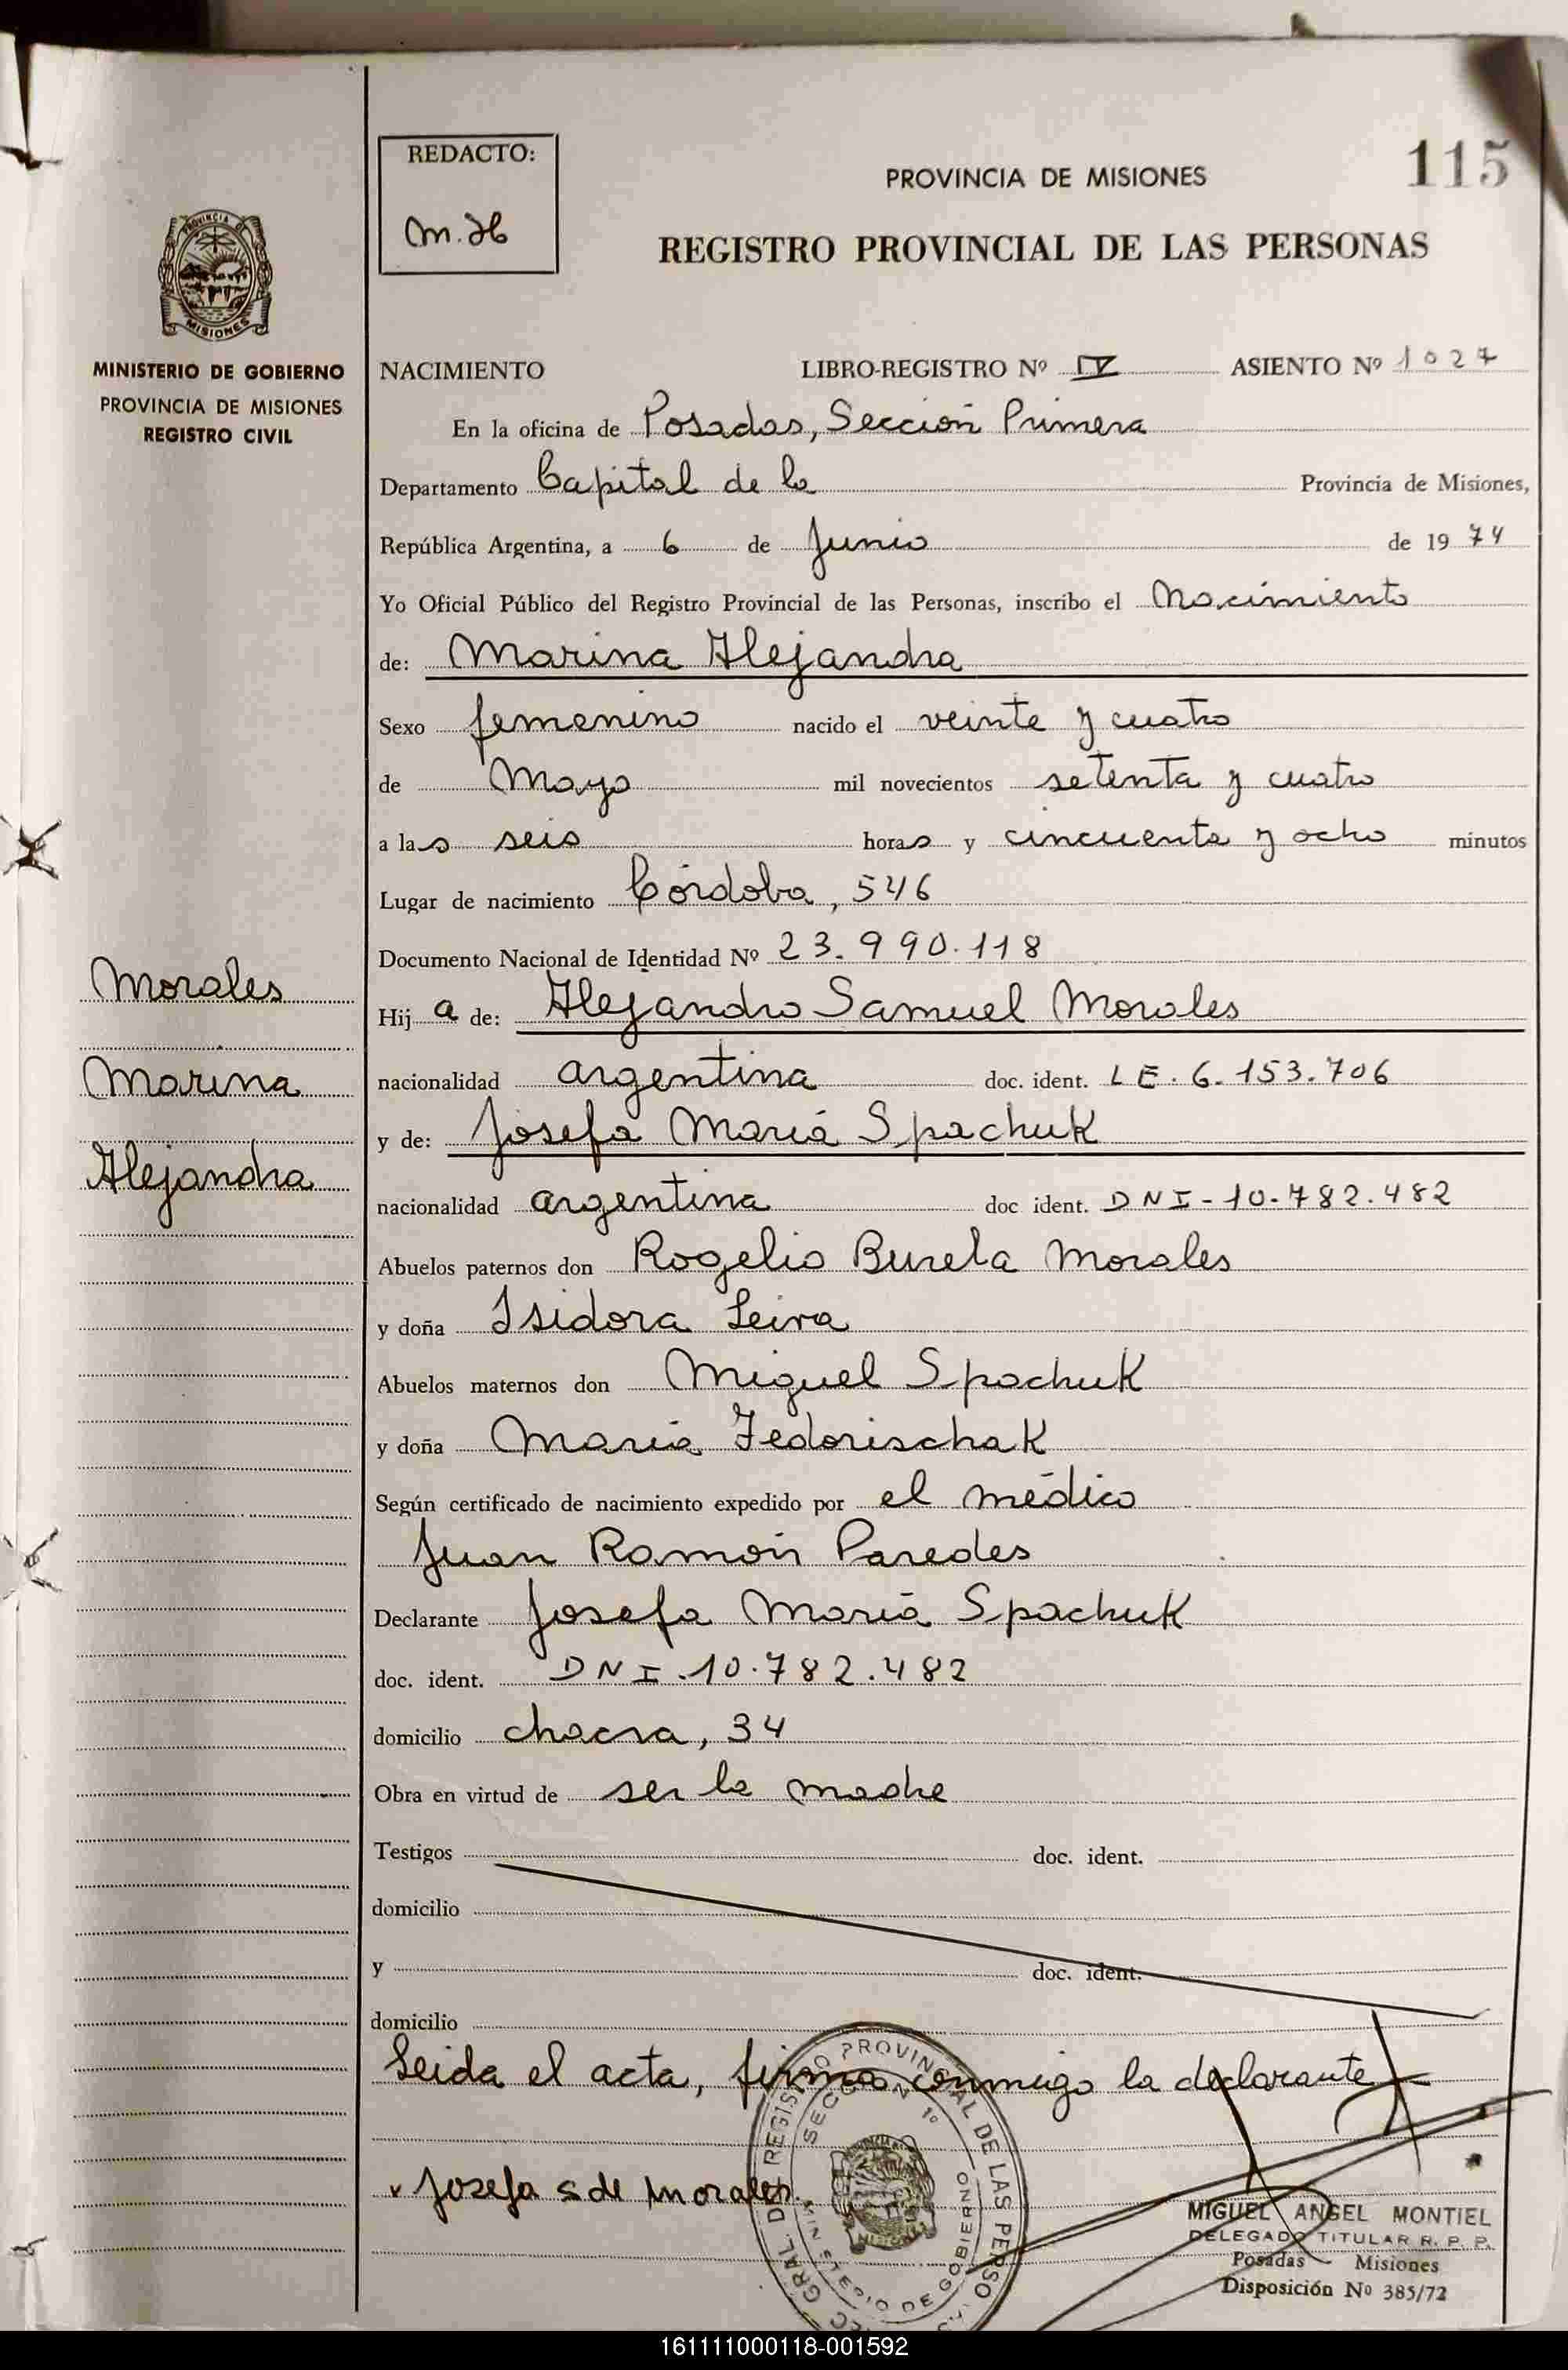 REDACTO:
M.H
PROVINCIA DE MISIONES
115
REGISTRO PROVINCIAL DE LAS PERSONAS
PROVINCIA
MISIONES
MINISTERIO DE GOBIERNO
PROVINCIA DE MISIONES
REGISTRO CIVIL
NACIMIENTO LIBRO-REGISTRO Nº IV ASIENTO Nº 1027
En la oficina de Posadas, Sección Primera
Departamento Capital de la Provincia de Misiones,
República Argentina, a 6 de Junio de 1974
Yo Oficial Público del Registro Provincial de las Personas, inscribo el Nacimiento
de: Marina Alejandra
Sexo femenino nacido el veinte y cuatro
de Mayo mil novecientos setenta y cuatro
a las seis horas y cincuenta y ocho minutos
Lugar de nacimiento Córdoba, 546
Documento Nacional de Identidad Nº 23.990.118
Morales
Marina
Alejandra
Hija de: Alejandro Samuel Morales
nacionalidad argentina doc. ident. LE. 6.153.706
y de: Josefa María Spachuk
nacionalidad argentina doc ident. DNI-10.782.482
Abuelos paternos don Rogelio Bureta Morales
y doña Isidora Leiva
Abuelos maternos don Miguel Spachuk
y doña María Fedorischak
Según certificado de nacimiento expedido por el médico
Juan Ramón Paredes
Declarante Josefa María Spachuk
doc. ident. DNI.10.782.482
domicilio chacra, 34
Obra en virtud de ser la madre
Testigos doc. ident.
domicilio
y doc. ident.
domicilio
Leida el acta, firma conmigo la declarante
Josefa S de Morales
GRAL. DE REGISTRO PROVINCIAL DE LAS PERSO
SECCION 1º
MINISTERIO DE GOBIERNO
MISIONES
MIGUEL ANGEL MONTIEL
DELEGADO TITULAR R. P. P.
Posadas - Misiones
Disposición Nº 385/72
161111000118-001592